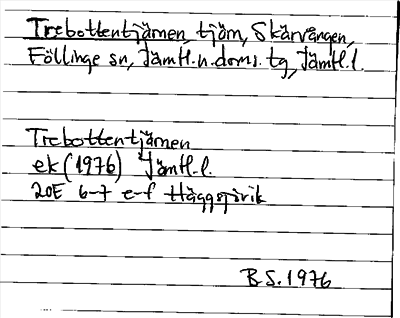 Trebottentjärnen, tjärn, Skärvången,
Föllinge sn, Jämtl. n. doms. tg, Jämtl. l.
Trebottentjärnen
ek (1976) Jämtl. l.
20E 6-7 e-f Häggsjövik
B.S. 1976